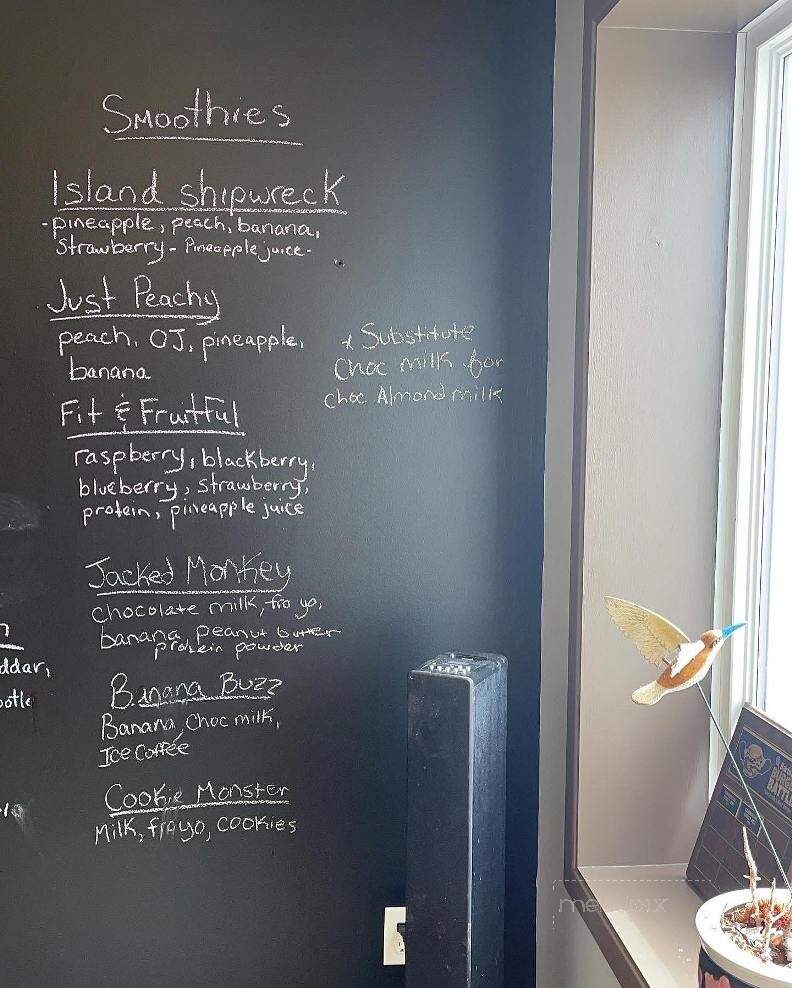 Smoothies
Island shipwreck
- pineapple, peach, banana,
Strawberry - Pineapple juice -
Just Peachy
peach, OJ, pineapple,
banana
x Substitute
Choc milk for
choc Almond milk
Fit & Fruitful
raspberry, blackberry,
blueberry, strawberry,
protein, pineapple juice
Jacked Monkey
chocolate milk, fro yo,
banana, peanut butter
protein powder
Banana Buzz
Banana, Choc milk,
Ice Coffee
Cookie Monster
Milk, froyo, cookies
ddar,
otle